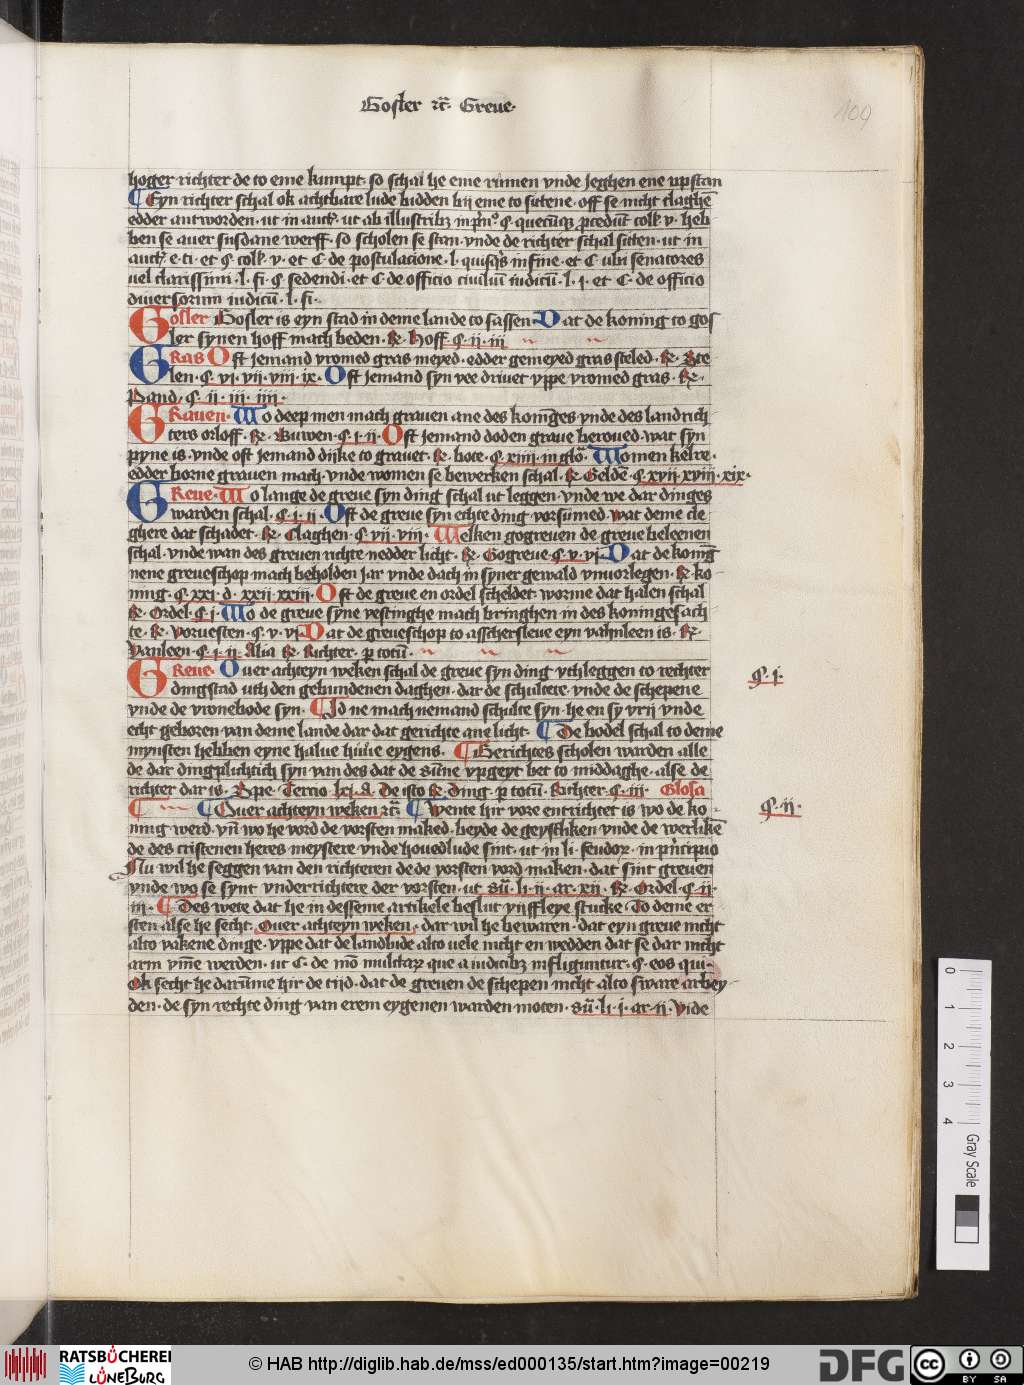 Gosler ⁊c̄. Greue.
109
hoger richter de to eme kumpt. so schal he eme rumen vnde jeghen ene vpstan
¶ Eyn richter schal ok achtbare lude bidden bij eme to sittene. off se nicht claghē
edder antworden. ut in auct. ut ab illustribꝫ
ben se auer susdane werff. so scholen se stan. vnde de richter schal sitten. ut in
auct. e. ti. et §. coll. v. et C. de postulacione. l. quisquis in fine. et C. ubi senatores
uel clarissimi. l. fi. § sedendi. et C. de officio ciuiliū iudicū. l. j. et C. de officio
diuersorum iudicū. l. fi.
Gosler Gosler is eyn stad in deme lande to sassen. Dat de koning to gos
ler synen hoff mach beden. R. hoff §. ii. iii
Gras Oft jemand vromed gras meyed. edder gemeyed gras steled. R. Ste
len. §. vi. vii. viii. ix. Oft jemand syn vee driuet vppe vromed gras. R.
Pand. §. ii. iii. iiii.
Grauen. Wo deep men mach grauen ane des koninges vnde des landrich
ters orloff. R. Buwen. §. i. ii. Oft jemand doden graue beroued. wat syn
pyne is. vnde oft jemand dijke to grauet. R. bote. §. xiiii. in glo. Wo men kelre.
edder borne grauen mach. vnde wo men se bewerken schal. R. Geldē. §. xvii. xviii. xix.
Greue. Wo lange de greue syn ding schal ut leggen. vnde we dar dinges
warden schal. §. i. ii. Oft de greue syn echte ding vorsumed. wat deme cle
ghere dat schadet. R. Claghen. §. vii. viii. Welken gogreuen de greue beleenen
schal. vnde wan des greuen richte nedder licht. R. Gogreue. §. v. vi. Dat de koning
nene greueschop mach beholden jar vnde dach in syner gewald vnuorlegen. R. ko
ning. §. xxi. d. xxii. xxiii. Oft de greue en ordel scheldet. worme dat halen schal
R. Ordel. §. i. Wo de greue syne vestinghe mach bringhen in des koninges ach
te. R. Voruesten. §. v. vi. Dat de greueschop to asschersleue eyn vahnleen is. R.
Vanleen. §. i. ii. Alia R. Richter. p totū.
Greue. Ouer achteyn weken schal de greue syn ding vthleggen to rechter
dingstad uth den gebundenen daghen. dar de schultete. vnde de schepene
vnde de vronebode syn. ¶ Id ne mach nemand schulte syn. he en sy vrij vnde
echt geboren van deme lande dar dat gerichte ane licht. ¶ De bodel schal to deme
mynsten hebben eyne halue huue eygens. ¶ Gerichtes scholen warden alle
de dar dingplichtich syn van des dat de sūne vpgeyt bet to middaghe. alse de
richter dar is. Tercio lxi. d. De isto R. Ding. p totū. Richter. §. iii. Glosa
¶ ¶ Ouer achteyn weken ⁊c̄. ¶ Wente hir vore entrichtet is wo de ko
ning werd. vn̄ wo he vord de vorsten maked. beyde de geystliken vnde de werlikē
de des cristenen heres meystere vnde houedlude sint. ut in li. feudor. in pͥncipio
Nu wil he seggen van den richteren de de vorsten vord maken. dat sint greuen
vnde wo se synt vnderrichtere der vorsten. ut sū. li. ii. ar. xii. R. Ordel. §. ii.
iii. ¶ Des wete dat he in desseme artikele beslut stucke. To deme er
sten alse he secht. Ouer achteyn weken. dar wil he bewaren. dat eyn greue nicht
alto vakene dinge. vppe dat de landlude alto uele nicht en wedden dat se dar nicht
arm vm̄e werden. ut C. de mō multar. que a iudicibꝫ infliguntur. §. eos qui.
Ok secht he darūme hir de tijd. dat de greuen de schepen nicht alto sware arbey
den. de syn rechte ding van erem eygenen warden moten. sū. li. i. ar. ii. Vide
§. j.
§. ij.
0
1
2
3
4
Gray Scale
RATSBÜCHEREI
LÜNEBURG
© HAB http://diglib.hab.de/mss/ed000135/start.htm?image=00219
DFG
cc
BY SA